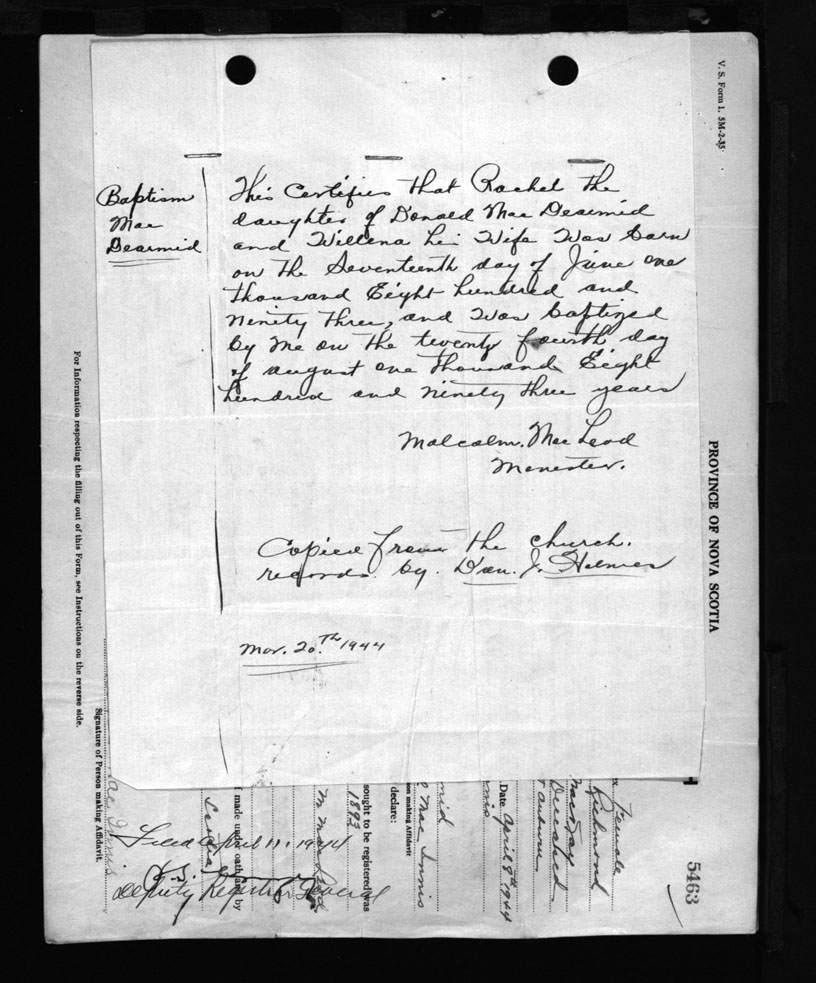 V. S. Form 1. 5M-2-35
Baptism
Mac
Dearmid
This Certifies that Rachel the
daughter of Donald Mac Dearmid
and Willena his Wife Was born
on the Seventeenth day of June one
thousand Eight hundred and
ninety three, and was baptized
by me on the twenty fourth day
of august one thousand Eight
hundred and ninety three years
Malcalm. Mac Leod
Menester.
Copied from the church.
records. by. Dan. J. Holmes
Mar. 20.th 1944
PROVINCE OF NOVA SCOTIA
5463
For Information respecting the filling out of this Form, see Instructions on the reverse side.
Signature of Person making Affidavit.
Female
Richmond
Date April 8th 1944
on making Affidavit
Mac Innis
declare:
sought to be registered was
1893
made under oath by
Filed April 11. 1944
Deputy Registrar General